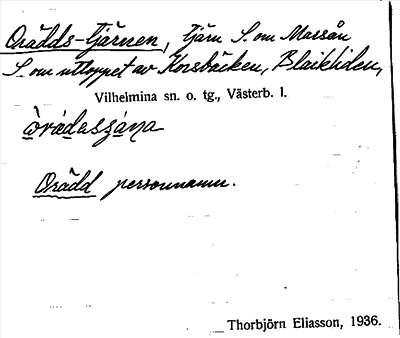 Orädds-tjärnen, tjärn S. om Marsån
S. om utloppet av Korsbäcken, Blaikliden,
Vilhelmina sn. o. tg., Västerb. l.
Orädd personnamn.
Thorbjörn Eliasson, 1936.